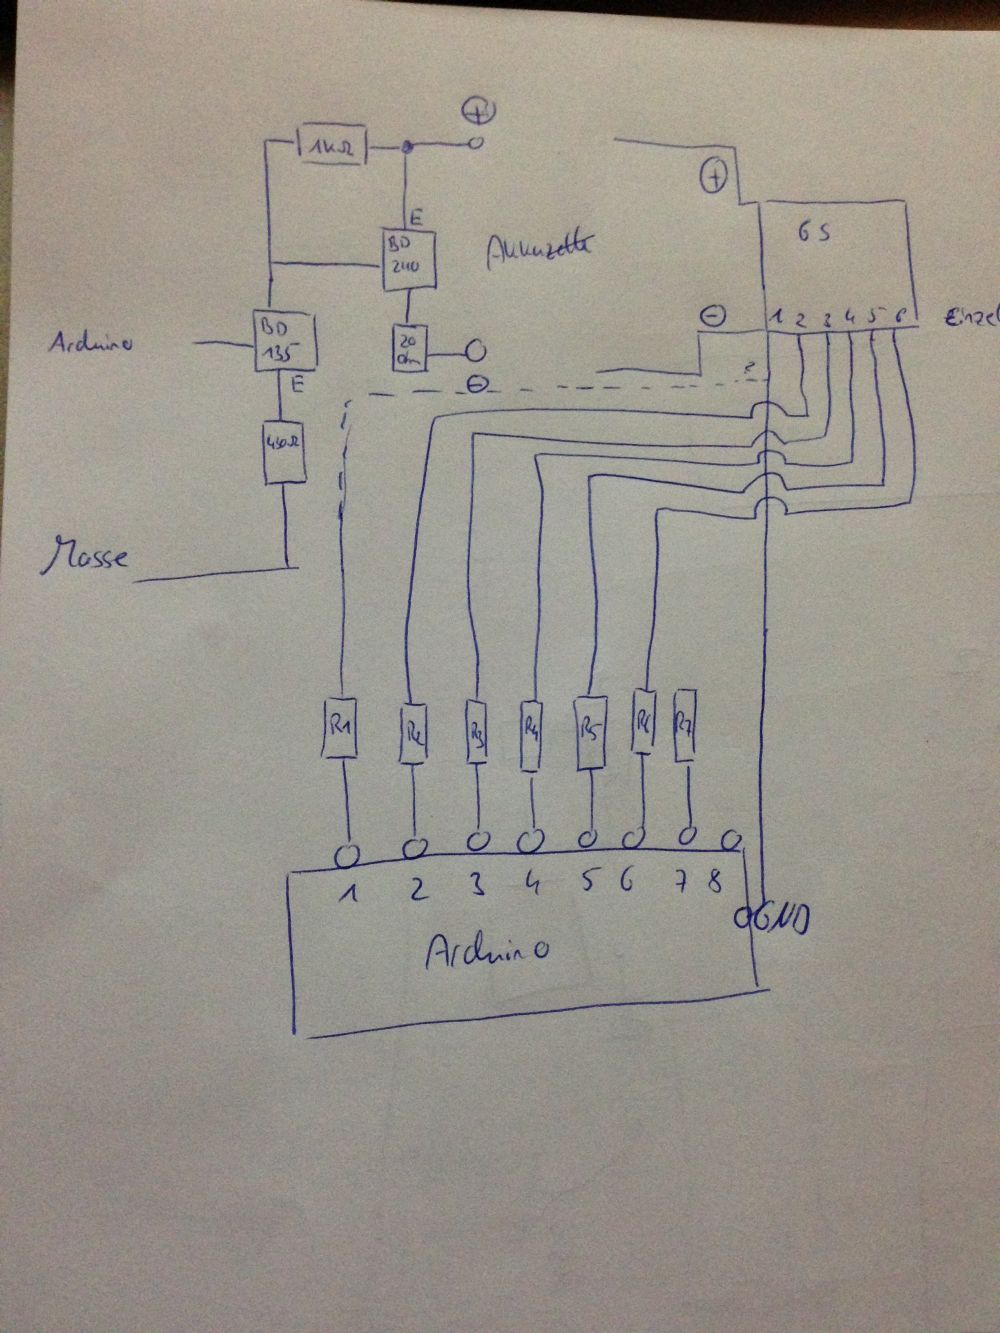 +
1kΩ
E
BD
240
Akkuzelle
+
6S
Arduino
BD
135
E
20
Ohm
-
-
1 2 3 4 5 6
Einzel
?
Masse
R1 R2 R3 R4 R5 R6 R7
1 2 3 4 5 6 7 8
GND
Arduino